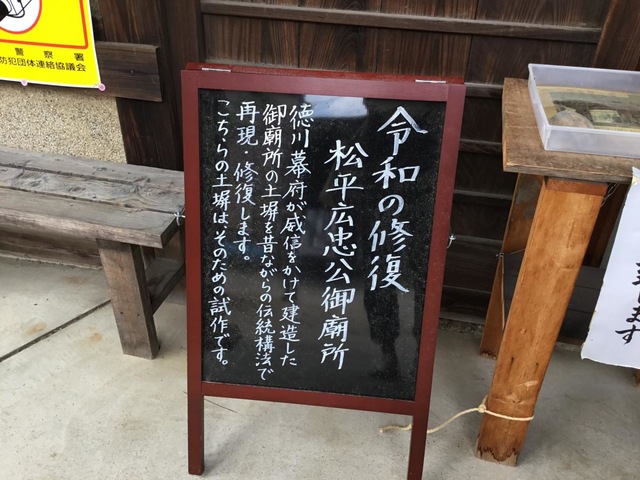 令和の修復
松平広忠公御廟所
徳川幕府が威信をかけて建造した
御廟所の土塀を昔ながらの伝統構法で
再現・修復します。
こちらの土塀は、そのための試作です。
警察署
防犯団体連絡協議会
ます